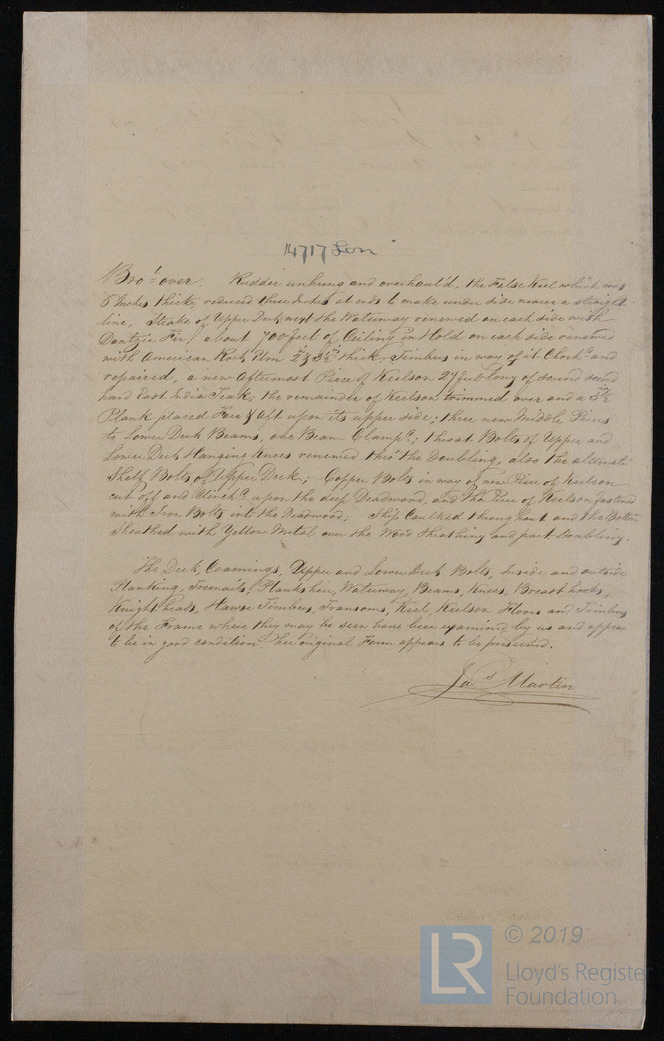 14717 Lon
Bro.t over. Rudder unhung and overhaul'd, the False Keel which was
6 Inches thick, reduced three Inches at ends to make under side nearer a straight
line, Strake of Upper Deck next the Waterway renewed on each side with
Dantzic Fir; about 700 feet of Ceiling in Hold on each side renewed
with American Rock Elm 2½ & 3½ thick, Timbers in way of it Chock.d and
repaired, a new aftermost Piece of Keelson 27 feet long of sound second
hand East India Teak; the remainder of Keelson trimmed over and a 3½
Plank placed Fore & Aft upon its upper side; three new Middle Pieces
to Lower Deck Beams, one Beam Clamp.d; throat Bolts of Upper and
Lower Deck Hanging Knees renewed thro' the Doubling, also the alternate
Shelf Bolts of Upper Deck; Copper Bolts in way of new Piece of Keelson
cut off and Clinch.d upon the deep Deadwood, and the Piece of Keelson fastened
with Iron Bolts into the Deadwood, Ship Caulked throughout and the Bottom
Sheathed with Yellow Metal over the Wood Sheathing and part Doubling.
The Deck, Comings, Upper and Lower Deck Bolts, Inside and outside
Planking, Treenails, Planksheer, Waterway, Beams, Knees, Breasthooks,
Knightheads, Hawse Timbers, Transoms, Keel, Keelson Floors and Timbers
of the Frame where they may be seen have been examined by us and appear
to be in good condition. Her original Form appears to be preserved.
Ja.s Martin
LR
© 2019
Lloyd's Register
Foundation